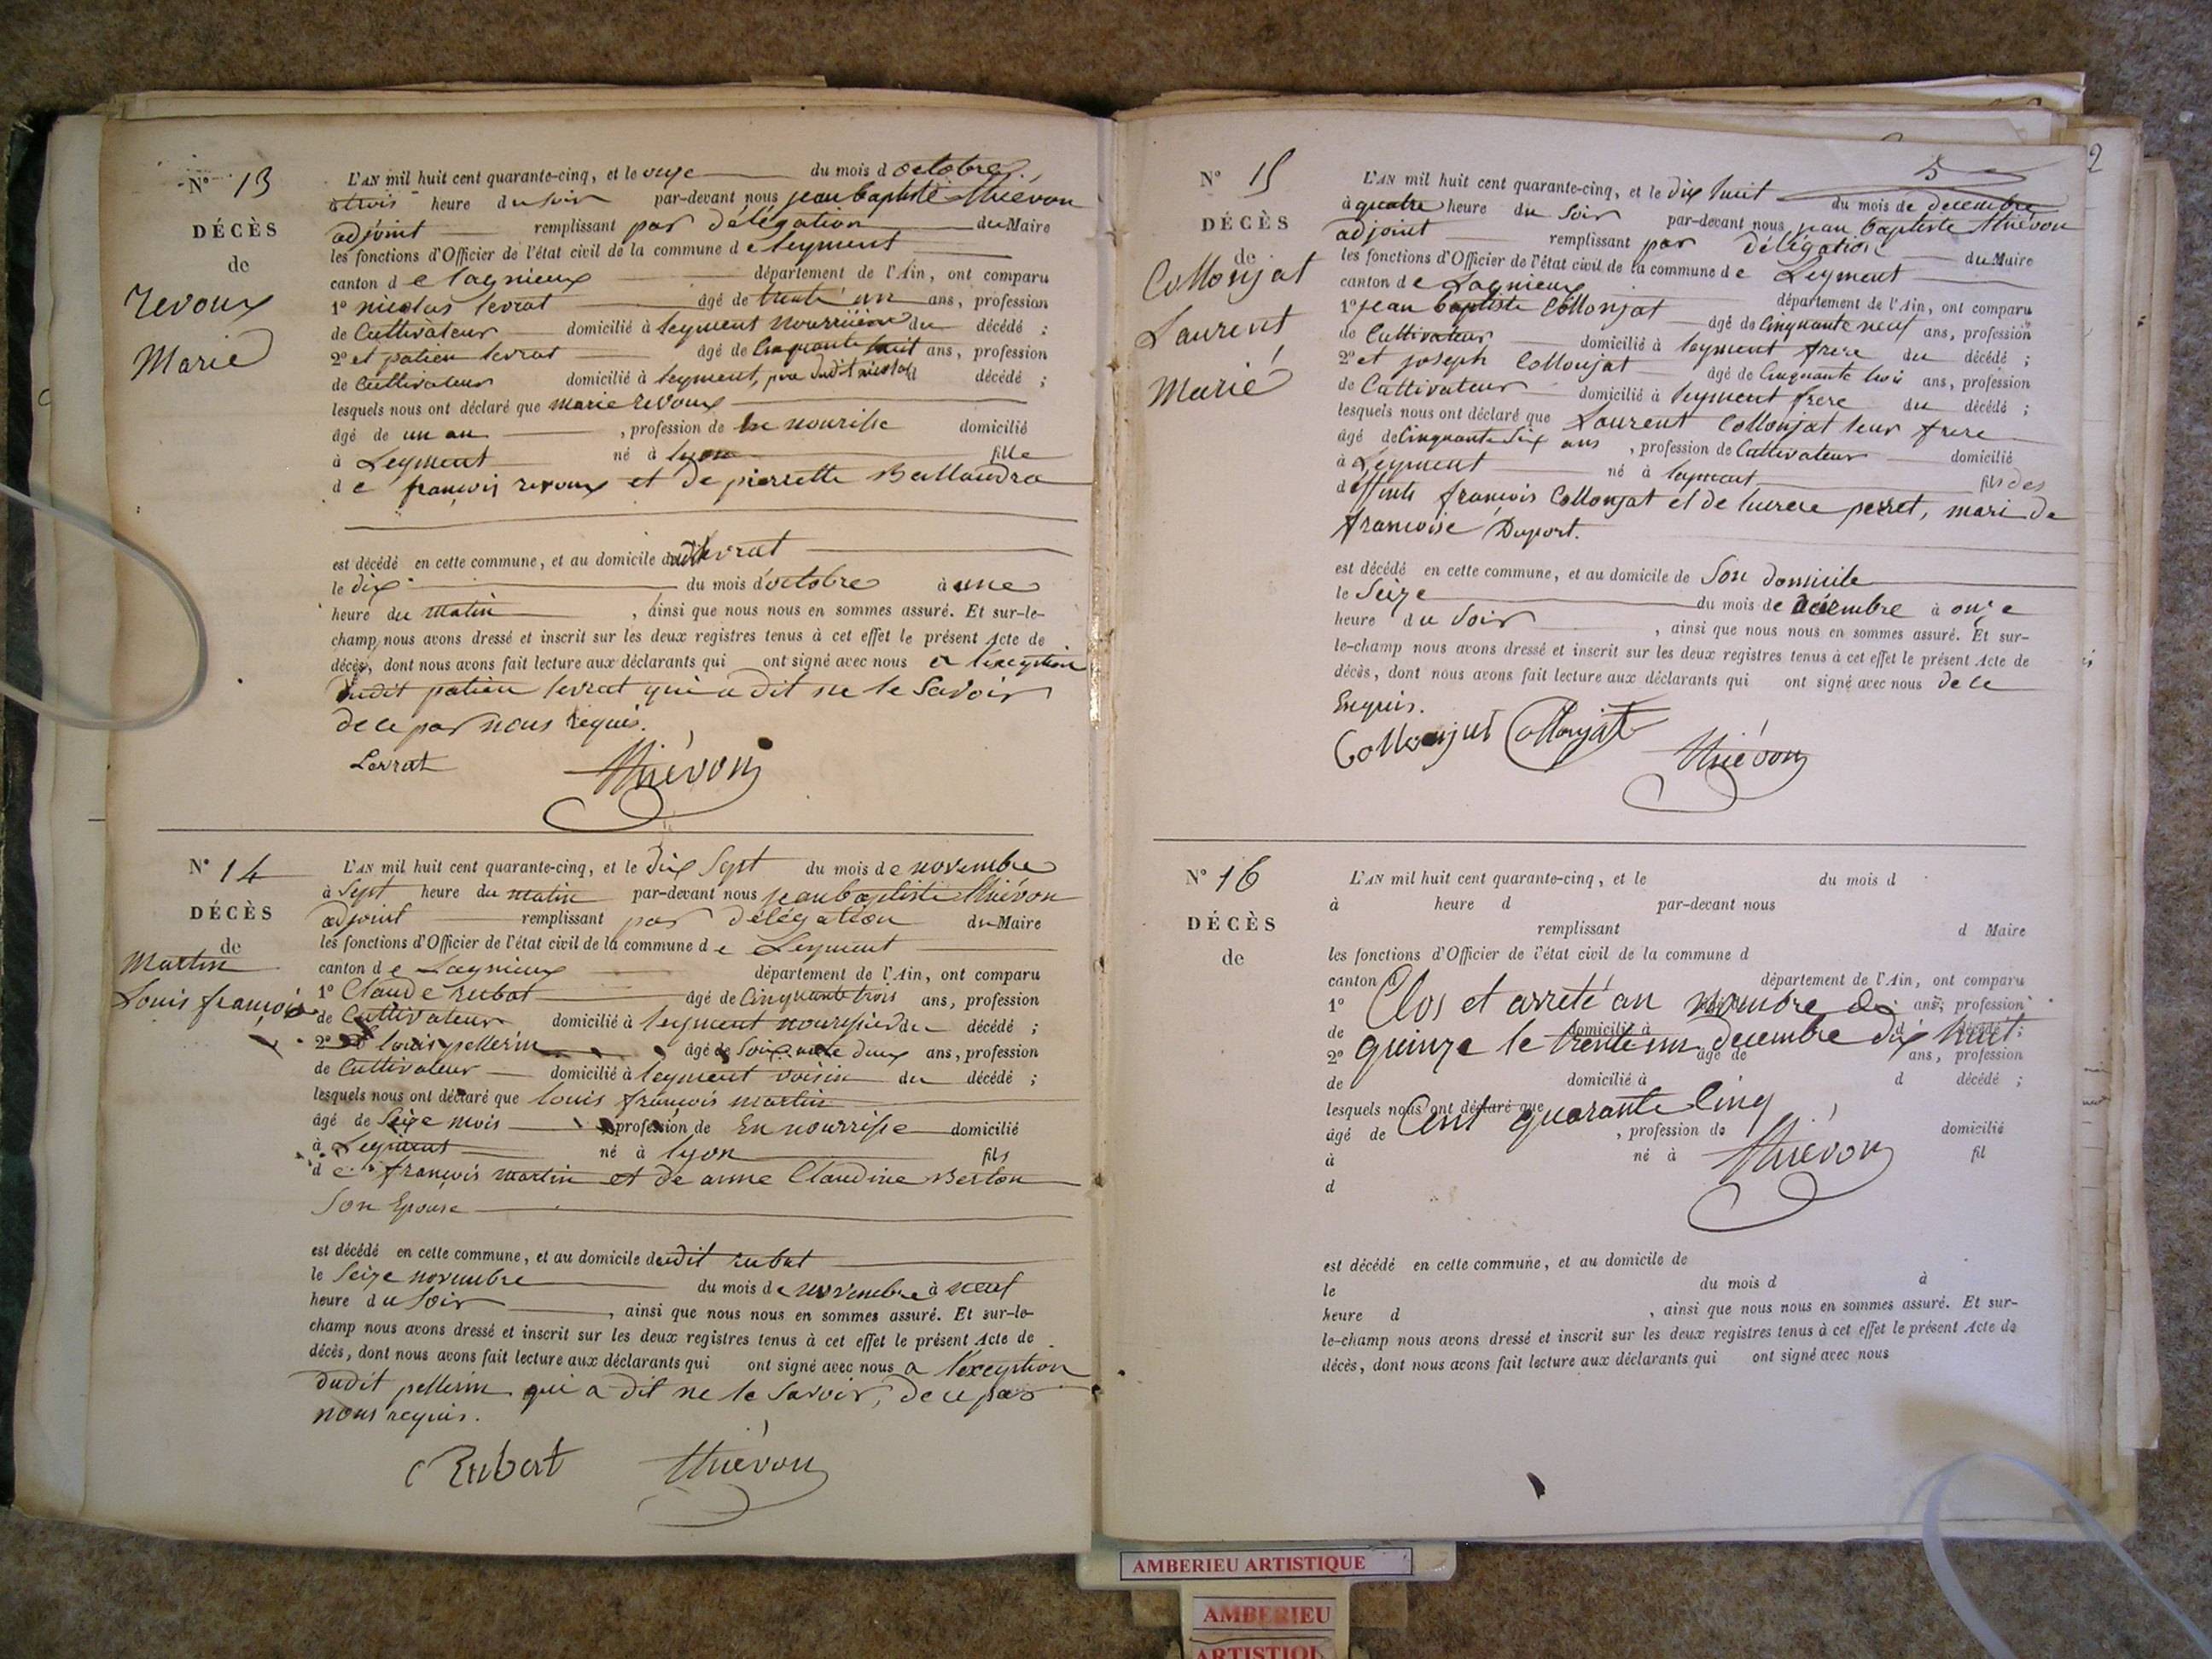 N° 13
DÉCÈS
de
revoux
Marie
L'AN mil huit cent quarante-cinq, et le onze du mois d octobre,
à trois heure du soir par-devant nous jean baptiste Thiévon
adjoint remplissant par délégation du Maire
les fonctions d'Officier de l'état civil de la commune de leyment
canton de lagnieux département de l'Ain, ont comparu
1° nicolas levrat âgé de trente un ans, profession
de Cultivateur domicilié à leyment nourricier du décédé ;
2° et patien levrat âgé de Cinquante huit ans, profession
de Cultivateur domicilié à leyment, père dudit nicolas décédé ;
lesquels nous ont déclaré que marie revoux
âgé de un an , profession de en nourisse domicilié
à Leyment né à lyon fille
de françois revoux et de pierrette Ballandra
est décédé en cette commune, et au domicile dudit levrat
le dix du mois d'octobre à une
heure du matin , ainsi que nous nous en sommes assuré. Et sur-le-
champ nous avons dressé et inscrit sur les deux registres tenus à cet effet le présent Acte de
décès, dont nous avons fait lecture aux déclarants qui ont signé avec nous a l'exception
dudit patien levrat qui a dit ne le savoir
de ce par nous requis.
Levrat Thiévon
N° 14
DÉCÈS
de
Martin
Louis françois
L'AN mil huit cent quarante-cinq, et le dix Sept du mois de novembre
à Sept heure du matin par-devant nous jean baptiste Thiévon
adjoint remplissant par délégation du Maire
les fonctions d'Officier de l'état civil de la commune de Leyment
canton de Lagnieux département de l'Ain, ont comparu
1° Claude rubat âgé de Cinquante trois ans, profession
de Cultivateur domicilié à leyment nourissier du décédé ;
2° et louis pellerin âgé de Soixante deux ans, profession
de Cultivateur domicilié à leyment voisin du décédé ;
lesquels nous ont déclaré que louis françois martin
âgé de Seize mois profession de En nourrisse domicilié
à Leyment né à lyon fils
de françois martin et de anne Claudine Berton
Son Epouse
est décédé en cette commune, et au domicile dudit rubat
le Seize novembre du mois de novembre à neuf
heure du Soir , ainsi que nous nous en sommes assuré. Et sur-le-
champ nous avons dressé et inscrit sur les deux registres tenus à cet effet le présent Acte de
décès, dont nous avons fait lecture aux déclarants qui ont signé avec nous a l'exception
dudit pellerin qui a dit ne le Savoir, de ce par
nous requis.
Rubat Thiévon
2
5
N° 15
DÉCÈS
de
Collonjat
Laurent
Marié
L'AN mil huit cent quarante-cinq, et le dix huit du mois de decembre
à quatre heure du Soir par-devant nous jean baptiste Thiévon
adjoint remplissant par délégation du Maire
les fonctions d'Officier de l'état civil de la commune de Leyment
canton de Lagnieux département de l'Ain, ont comparu
1° jean baptiste Collonjat âgé de Cinquante neuf ans, profession
de Cultivateur domicilié à leyment frere du décédé ;
2° et joseph Collonjat âgé de Cinquante trois ans, profession
de Cultivateur domicilié à leyment frere du décédé ;
lesquels nous ont déclaré que Laurent Collonjat leur frere
âgé de Cinquante Six ans , profession de Cultivateur domicilié
à Leyment né à leyment fils des
deffints françois Collonjat et de lucrece perret, mari de
francoise Duport.
est décédé en cette commune, et au domicile de Son domicile
le Seize du mois de décembre à onze
heure du Soir , ainsi que nous nous en sommes assuré. Et sur-
le-champ nous avons dressé et inscrit sur les deux registres tenus à cet effet le présent Acte de
décès, dont nous avons fait lecture aux déclarants qui ont signé avec nous de ce
Enquis.
Collonjat Collonjat Thiévon
N° 16
DÉCÈS
de
L'AN mil huit cent quarante-cinq, et le du mois d
à heure d par-devant nous
remplissant d Maire
les fonctions d'Officier de l'état civil de la commune d
canton d département de l'Ain, ont comparu
1° âgé de ans, profession
Clos et arreté au nombre de
de domicilié à d décédé ;
quinze le trente un decembre dix huit
2° âgé de ans, profession
de domicilié à d décédé ;
lesquels nous ont déclaré que
Cent quarante Cinq
âgé de , profession de domicilié
à né à fil
Thiévon
d
est décédé en cette commune, et au domicile de
le du mois d à
heure d , ainsi que nous nous en sommes assuré. Et sur-
le-champ nous avons dressé et inscrit sur les deux registres tenus à cet effet le présent Acte de
décès, dont nous avons fait lecture aux déclarants qui ont signé avec nous
AMBERIEU ARTISTIQUE
AMBERIEU
ARTISTIQ